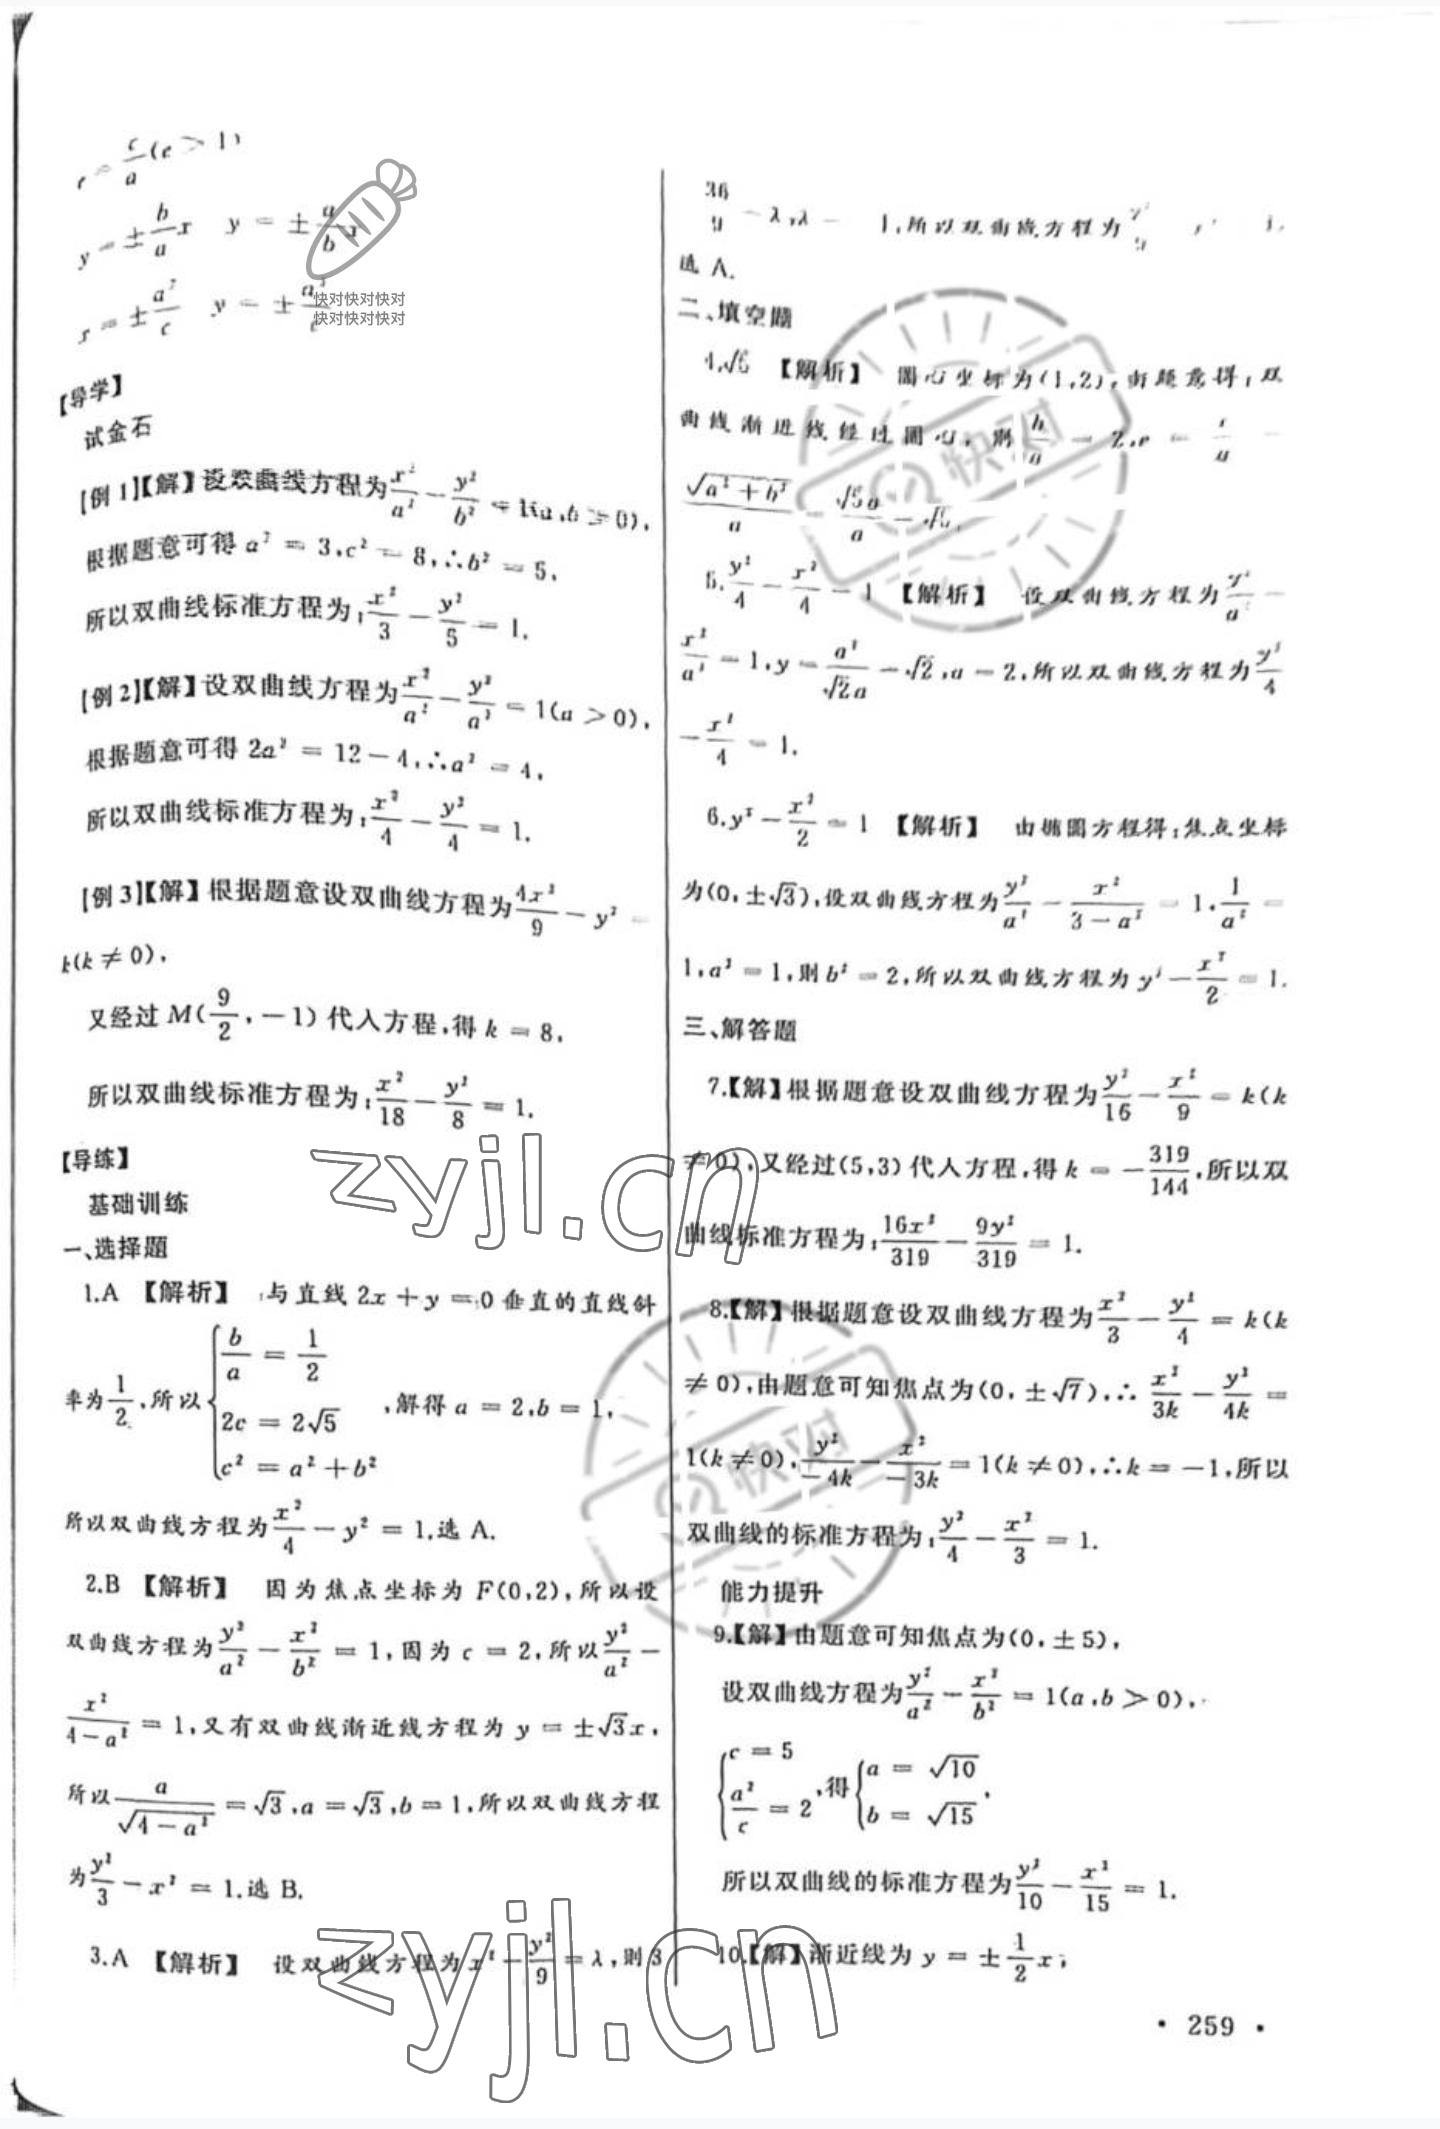 e = c/a (e > 1)
y = ± b/a x  y = ± a/b x
x = ± a²/c  y = ± a²/c
快对快对快对
快对快对快对
【导学】
试金石
[例 1]【解】设双曲线方程为 x²/a² − y²/b² = 1(a,b > 0),
根据题意可得 a² = 3,c² = 8,∴b² = 5,
所以双曲线标准方程为: x²/3 − y²/5 = 1.
[例 2]【解】设双曲线方程为 x²/a² − y²/a² = 1(a > 0),
根据题意可得 2a² = 12 − 4,∴a² = 4,
所以双曲线标准方程为: x²/4 − y²/4 = 1.
[例 3]【解】根据题意设双曲线方程为 4x²/9 − y² =
k(k ≠ 0),
又经过 M(9/2, −1) 代入方程,得 k = 8,
所以双曲线标准方程为: x²/18 − y²/8 = 1.
【导练】
基础训练
一、选择题
1.A 【解析】 与直线 2x + y = 0 垂直的直线斜
率为 1/2,所以 { b/a = 1/2
2c = 2√5
c² = a² + b² ,解得 a = 2,b = 1,
所以双曲线方程为 x²/4 − y² = 1,选 A.
2.B 【解析】 因为焦点坐标为 F(0,2),所以设
双曲线方程为 y²/a² − x²/b² = 1,因为 c = 2,所以 y²/a² −
x²/(4 − a²) = 1,又有双曲线渐近线方程为 y = ±√3x,
所以 a/√(4 − a²) = √3,a = √3,b = 1,所以双曲线方程
为 y²/3 − x² = 1.选 B.
3.A 【解析】 设双曲线方程为 x² − y²/9 = λ,则 3
36/9 = λ,λ = −1,所以双曲线方程为 y²/9 − x² = 1,
选 A.
二、填空题
4.√5 【解析】 圆心坐标为(1,2),由题意得:双
曲线渐近线经过圆心,则 b/a = 2,e = c/a =
√(a² + b²)/a = √5a/a = √5,
5. y²/4 − x²/4 = 1 【解析】 设双曲线方程为 y²/a² −
x²/a² = 1,y = a²/(√2a) = √2,a = 2,所以双曲线方程为 y²/4
− x²/4 = 1.
6.y² − x²/2 = 1 【解析】 由椭圆方程得:焦点坐标
为(0, ±√3),设双曲线方程为 y²/a² − x²/(3 − a²) = 1, 1/a² =
1,a² = 1,则 b² = 2,所以双曲线方程为 y² − x²/2 = 1.
三、解答题
7.【解】根据题意设双曲线方程为 y²/16 − x²/9 = k(k
≠ 0),又经过(5,3) 代入方程,得 k = − 319/144,所以双
曲线标准方程为: 16x²/319 − 9y²/319 = 1.
8.【解】根据题意设双曲线方程为 x²/3 − y²/4 = k(k
≠ 0),由题意可知焦点为(0, ±√7),∴ x²/3k − y²/4k =
1(k ≠ 0), y²/−4k − x²/−3k = 1(k ≠ 0),∴k = −1,所以
双曲线的标准方程为: y²/4 − x²/3 = 1.
能力提升
9.【解】由题意可知焦点为(0, ±5),
设双曲线方程为 y²/a² − x²/b² = 1(a,b > 0),
{ c = 5
a²/c = 2 ,得 { a = √10
b = √15 .
所以双曲线的标准方程为 y²/10 − x²/15 = 1.
10.【解】渐近线为 y = ± 1/2 x;
• 259 •
快对
快对
zyjl.cn
zyjl.cn